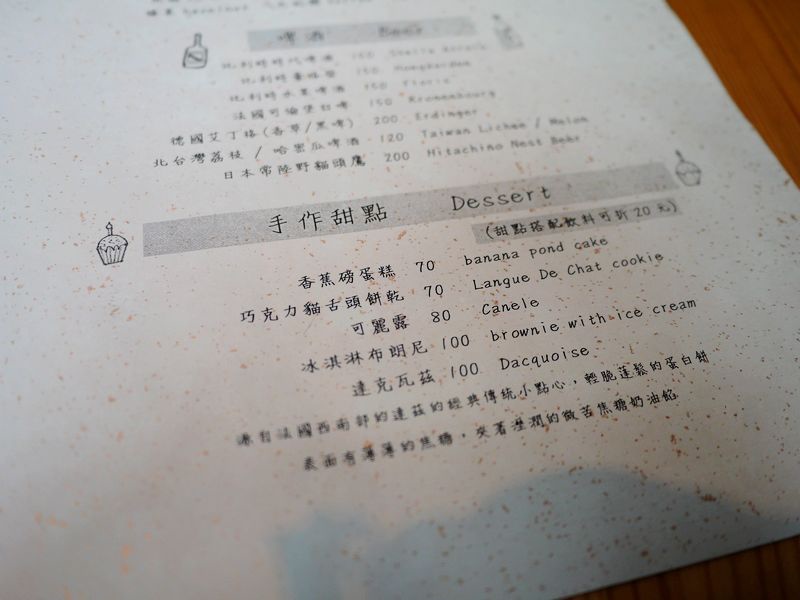 啤酒 Beer
比利時時代啤酒 150 Stella Artois
比利時豪格登 150 Hoegaarden
比利時水果啤酒 150 Floris
法國可倫堡白啤 150 Kronenbourg
德國艾丁格(香草/黑啤) 200 Erdinger
北台灣荔枝 / 哈密瓜啤酒 120 Taiwan Lichee / Melon
日本常陸野貓頭鷹 200 Hitachino Nest Beer
手作甜點 Dessert
(甜點搭配飲料可折20元)
香蕉磅蛋糕 70 banana pond cake
巧克力貓舌頭餅乾 70 Langue De Chat cookie
可麗露 80 Canele
冰淇淋布朗尼 100 brownie with ice cream
達克瓦茲 100 Dacquoise
源自法國西南部的達茲的經典傳統小點心，輕脆蓬鬆的蛋白餅
表面有薄薄的焦糖，夾著溼潤的微苦焦糖奶油餡